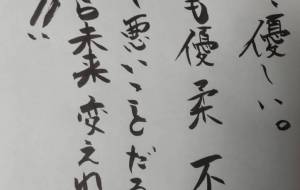 優しい。
も優柔不
悪いことだ
未来変え
!!